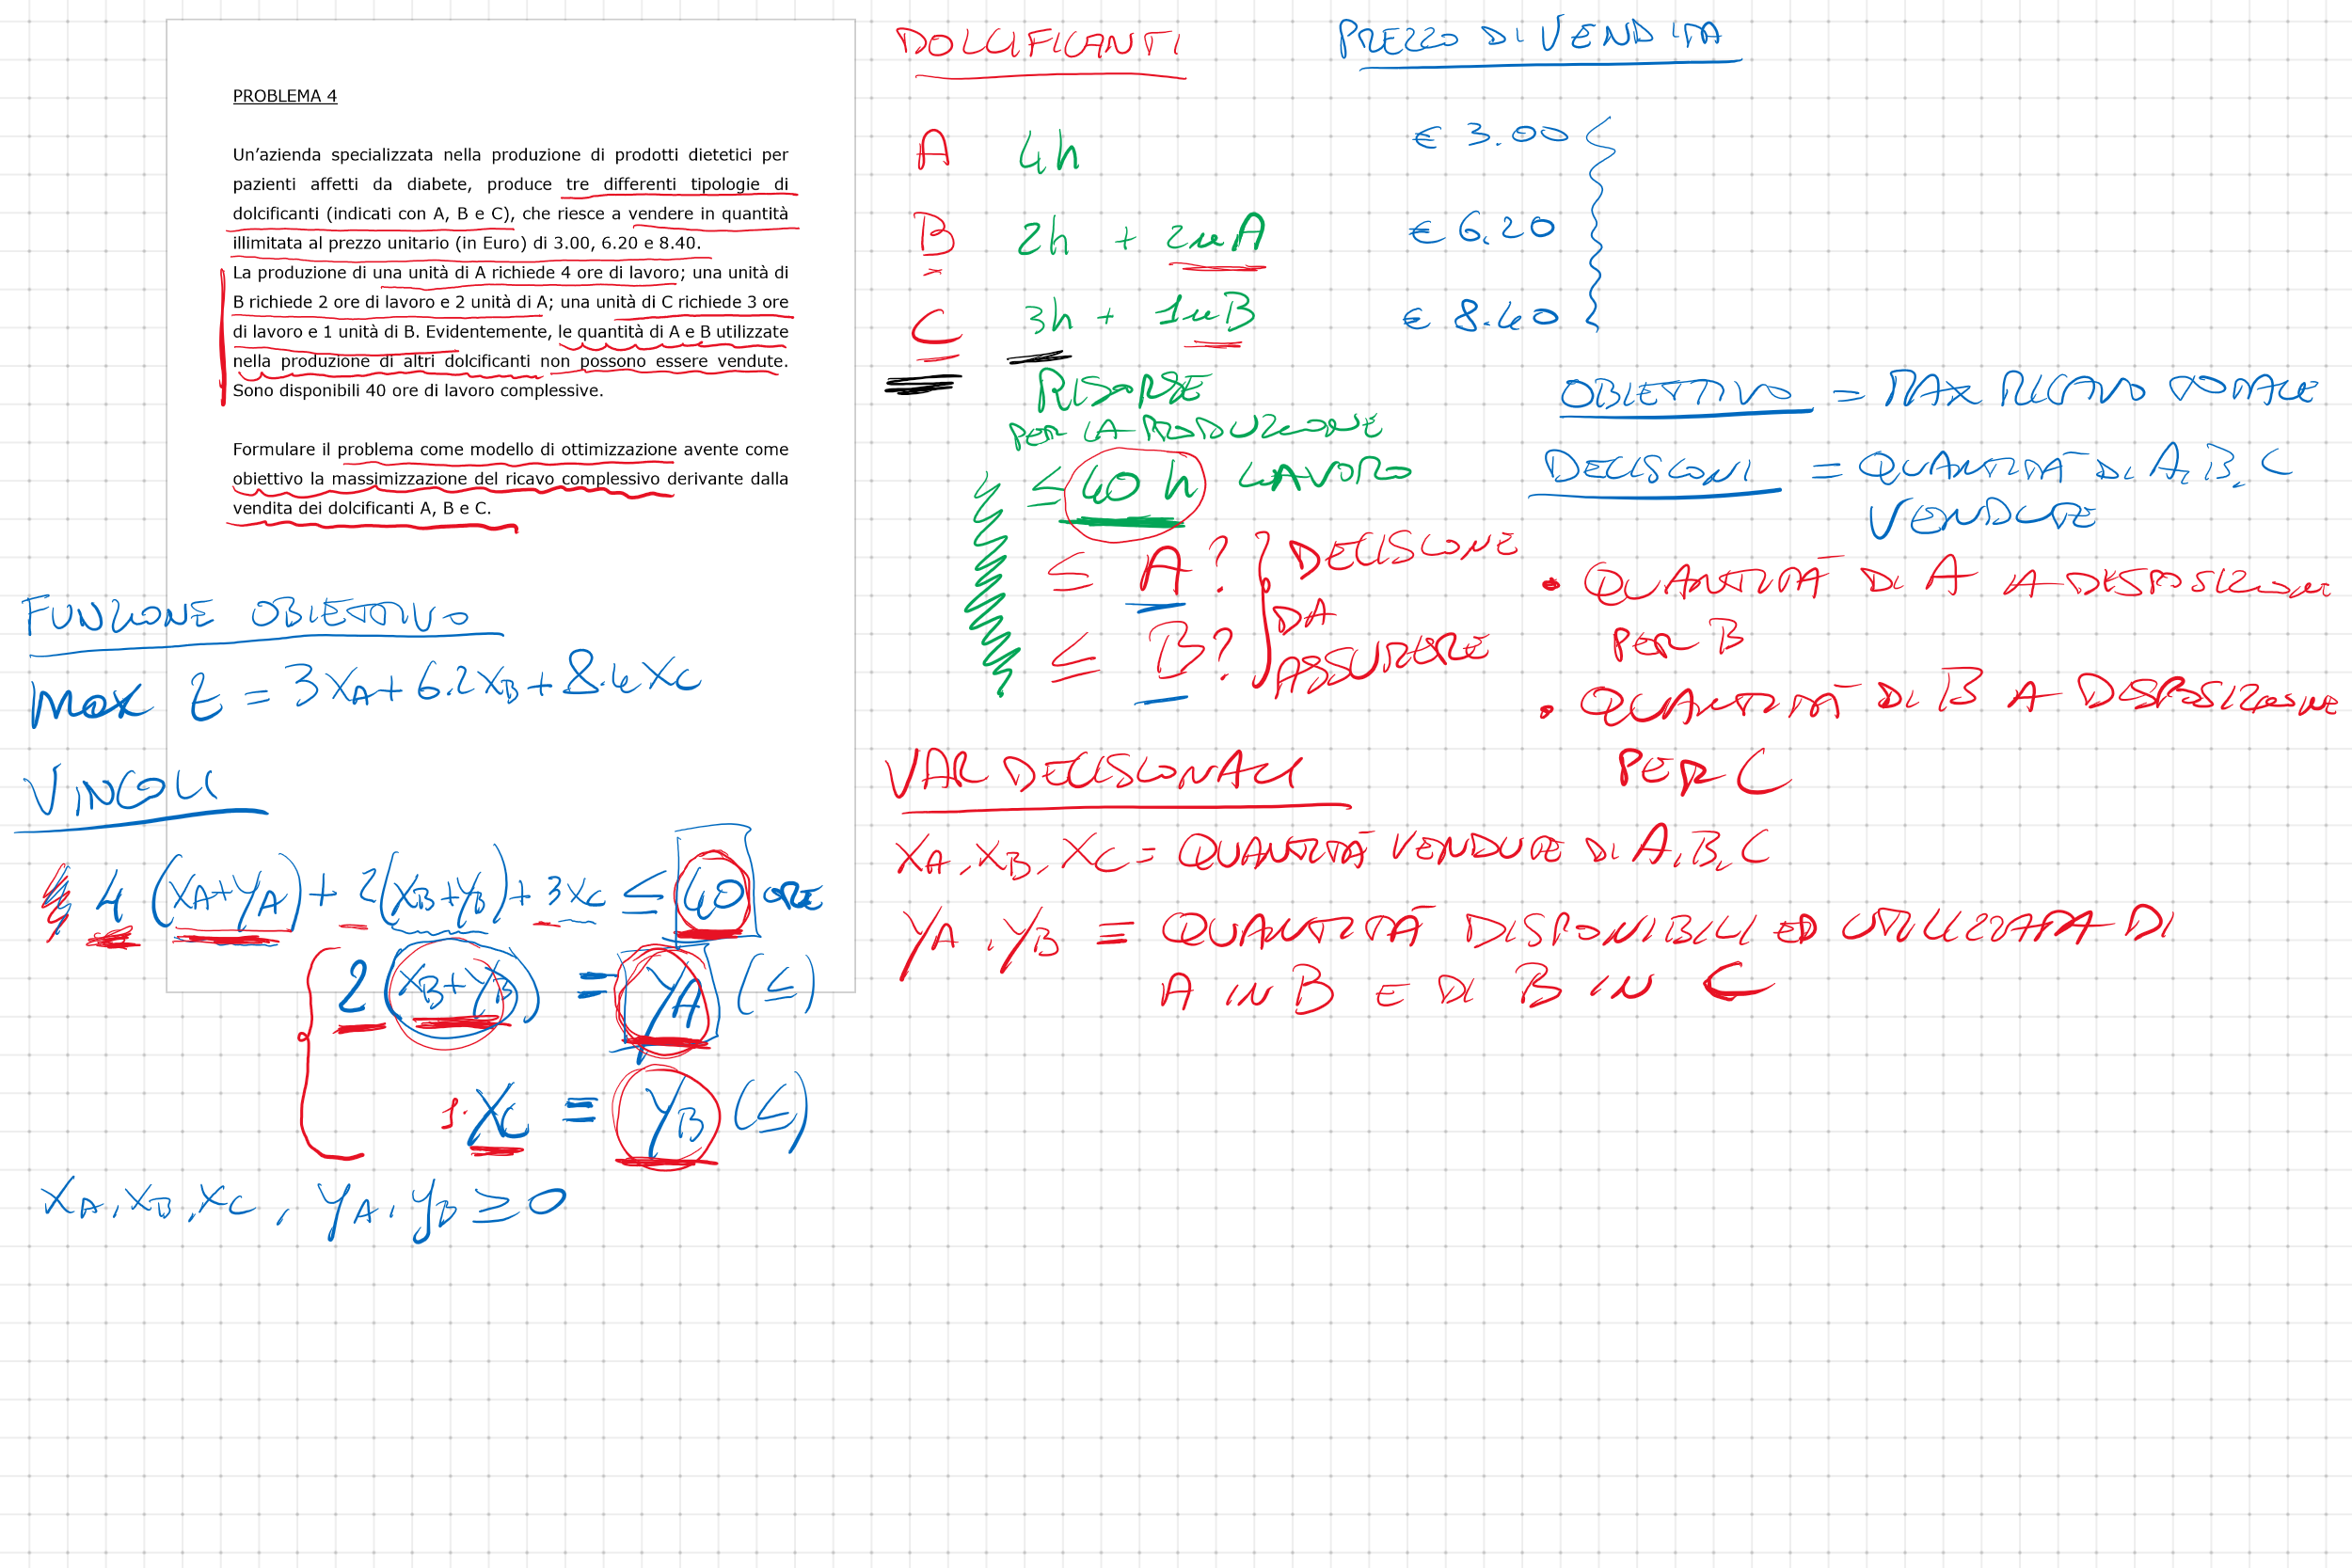 PROBLEMA 4
Un'azienda specializzata nella produzione di prodotti dietetici per
pazienti affetti da diabete, produce tre differenti tipologie di
dolcificanti (indicati con A, B e C), che riesce a vendere in quantità
illimitata al prezzo unitario (in Euro) di 3.00, 6.20 e 8.40.
La produzione di una unità di A richiede 4 ore di lavoro; una unità di
B richiede 2 ore di lavoro e 2 unità di A; una unità di C richiede 3 ore
di lavoro e 1 unità di B. Evidentemente, le quantità di A e B utilizzate
nella produzione di altri dolcificanti non possono essere vendute.
Sono disponibili 40 ore di lavoro complessive.
Formulare il problema come modello di ottimizzazione avente come
obiettivo la massimizzazione del ricavo complessivo derivante dalla
vendita dei dolcificanti A, B e C.
DOLCIFICANTI PREZZO DI VENDITA
A 4h € 3.00
B 2h + 2uA € 6.20
C 3h + 1uB € 8.40
RISORSE
PER LA PRODUZIONE
≤ 40 h LAVORO
≤ A?
≤ B?
DECISIONE
DA
ASSUMERE
OBIETTIVO = MAX RICAVO TOTALE
DECISIONI = QUANTITÀ DI A, B, C
VENDUTE
• QUANTITÀ DI A A DISPOSIZIONE
PER B
• QUANTITÀ DI B A DISPOSIZIONE
PER C
FUNZIONE OBIETTIVO
max Z = 3XA + 6.2XB + 8.4XC
VINCOLI
4 (XA+YA) + 2(XB+YB) + 3XC ≤ 40 ORE
2 (XB+YB) = YA (≤)
1·XC = YB (≤)
XA, XB, XC, YA, YB ≥ 0
VAR DECISIONALI
XA, XB, XC = QUANTITÀ VENDUTE DI A, B, C
YA, YB = QUANTITÀ DISPONIBILI ED UTILIZZATA DI
A IN B E DI B IN C